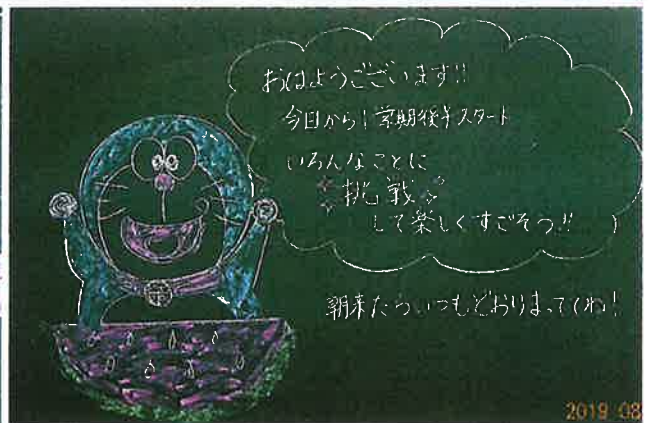 おはようございます!!
今日から1学期後半スタート
いろんなことに
挑戦
して楽しくすごそう!!
朝来たらいつもどおりまっててね!
2019 08